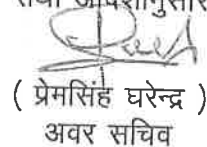 तथा आदेशानुसार
( प्रेमसिंह घरेन्द्र )
अवर सचिव